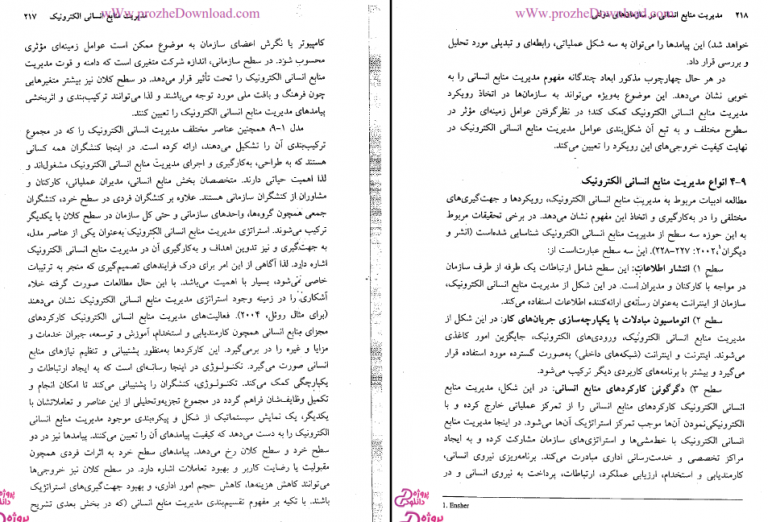 www.prozheDownload.com
مدیریت منابع انسانی الکترونیک ۲۱۷
کامپیوتر یا نگرش اعضای سازمان به موضوع ممکن است عوامل زمینه‌ای مؤثری
محسوب شود. در سطح سازمانی، اندازه شرکت متغیری است که دامنه و قوت مدیریت
منابع انسانی الکترونیک را تحت تأثیر قرار می‌دهد. در سطح کلان نیز بیشتر متغیرهایی
چون فرهنگ و بافت ملی مورد توجه می‌باشند و لذا می‌توانند ترکیب‌بندی و اثربخشی
پیامدهای مدیریت منابع انسانی الکترونیک را تعیین کنند.
مدل ۱-۹، همچنین عناصر مختلف مدیریت انسانی الکترونیک را که در مجموع
ترکیب‌بندی آن را تشکیل می‌دهند، ارائه کرده است. در اینجا کنشگران همه کسانی
هستند که به طراحی، به‌کارگیری و اجرای مدیریت منابع انسانی الکترونیک مشغول‌اند و
لذا اهمیت حیاتی دارند. متخصصان بخش منابع انسانی، مدیران عملیاتی، کارکنان و
مشاوران از کنشگران سازمانی هستند. علاوه بر کنشگران فردی در سطح خرد، کنشگران
جمعی همچون گروه‌ها، واحدهای سازمانی و حتی کل سازمان در سطح کلان با یکدیگر
ترکیب می‌شوند. استراتژی مدیریت منابع انسانی الکترونیک به‌عنوان یکی از عناصر مدل،
به جهت‌گیری و نیز تدوین اهداف و به‌کارگیری آن در مدیریت منابع انسانی الکترونیک
اشاره دارد. لذا آگاهی از این امر برای درک فرایندهای تصمیم‌گیری که منجر به ترتیبات
خاصی می‌شود، بسیار با اهمیت می‌باشد. با این حال مطالعات صورت گرفته خلاء
آشکاری را در زمینه وجود استراتژی مدیریت منابع انسانی الکترونیک نشان می‌دهند
(برای مثال روئل، ۲۰۰۴). فعالیت‌های مدیریت منابع انسانی الکترونیک کارکردهای
مجزای منابع انسانی همچون کارمندیابی و استخدام، آموزش و توسعه، جبران خدمات و
مزایا و غیره را در برمی‌گیرد. این کارکردها به‌منظور پشتیبانی و تنظیم نیازهای منابع
انسانی صورت می‌گیرد. تکنولوژی در اینجا رسانه‌ای است که به ایجاد ارتباطات و
یکپارچگی کمک می‌کند. تکنولوژی، کنشگران را پشتیبانی می‌کند تا امکان انجام و
تکمیل وظایف‌شان فراهم گردد در مجموع تجزیه‌وتحلیلی از این عناصر و تعاملاتشان با
یکدیگر، یک نمایش سیستماتیک از شکل و پیکره‌بندی موجود مدیریت منابع انسانی
الکترونیک را به دست می‌دهد که کیفیت پیامدهای آن را تعیین می‌کنند. پیامدها نیز در دو
سطح خرد و سطح کلان رخ می‌دهد. پیامدهای سطح خرد به اثرات فردی همچون
مقبولیت یا رضایت کاربر و بهبود تعاملات اشاره دارد. در سطح کلان نیز خروجی‌ها
می‌توانند کاهش هزینه‌ها، کاهش حجم امور اداری، و بهبود جهت‌گیری‌های استراتژیک
باشند. با تکیه بر مفهوم تقسیم‌بندی مدیریت منابع انسانی (که در بخش بعدی تشریح
پروژه
دانلود
www.prozheDownload.com
۲۱۸ مدیریت منابع انسانی در سازمان‌های دولتی
خواهد شد) این پیامدها را می‌توان به سه شکل عملیاتی، رابطه‌ای و تبدیلی مورد تحلیل
و بررسی قرار داد.
در هر حال چهارچوب مذکور ابعاد چندگانه مفهوم مدیریت منابع انسانی را به
خوبی نشان می‌دهد. این موضوع به‌ویژه می‌تواند به سازمان‌ها در اتخاذ رویکرد
مدیریت منابع انسانی الکترونیک کمک کند؛ در نظرگرفتن عوامل زمینه‌ای مؤثر در
سطوح مختلف و به تبع آن شکل‌بندی عوامل مدیریت منابع انسانی الکترونیک در
نهایت کیفیت خروجی‌های این رویکرد را تعیین می‌کند.
۴-۹ انواع مدیریت منابع انسانی الکترونیک
مطالعه ادبیات مربوط به مدیریت منابع انسانی الکترونیک، رویکردها و جهت‌گیری‌های
مختلفی را در به‌کارگیری و اتخاذ این مفهوم نشان می‌دهد. در برخی تحقیقات مربوط
به این حوزه سه سطح از مدیریت منابع انسانی الکترونیک شناسایی شده‌است (انشر و
دیگران۱، ۲۰۰۲: ۲۲۷-۲۲۸). این سه سطح عبارت‌است از:
سطح ۱) انتشار اطلاعات: این سطح شامل ارتباطات یک طرفه از طرف سازمان
در مواجه با کارکنان و مدیران است. در این شکل از مدیریت منابع انسانی الکترونیک،
سازمان از اینترانت به‌عنوان رسانه‌ی ارائه‌کننده اطلاعات استفاده می‌کند.
سطح ۲) اتوماسیون مبادلات با یکپارچه‌سازی جریان‌های کار: در این شکل از
مدیریت منابع انسانی الکترونیک، ورودی‌های الکترونیک، جایگزین امور کاغذی
می‌شوند. اینترنت و اینترانت (شبکه‌های داخلی) به‌صورت گسترده مورد استفاده قرار
می‌گیرد و بیشتر با برنامه‌های کاربردی دیگر ترکیب می‌شود.
سطح ۳) دگرگونی کارکردهای منابع انسانی: در این شکل، مدیریت منابع
انسانی الکترونیک کارکردهای منابع انسانی را از تمرکز عملیاتی خارج کرده و با
الکترونیکی‌نمودن آن‌ها موجب تمرکز استراتژیک آن‌ها می‌شود. در اینجا مدیریت منابع
انسانی الکترونیک با خط‌مشی‌ها و استراتژی‌های سازمان مشارکت کرده و به ایجاد
مراکز تخصصی و خدمت‌رسانی اداری مبادرت می‌کند. برنامه‌ریزی نیروی انسانی،
کارمندیابی و استخدام، ارزیابی عملکرد، ارتباطات، پرداخت به نیروی انسانی و در
1. Ensher
پروژه
دانلود
پروژه